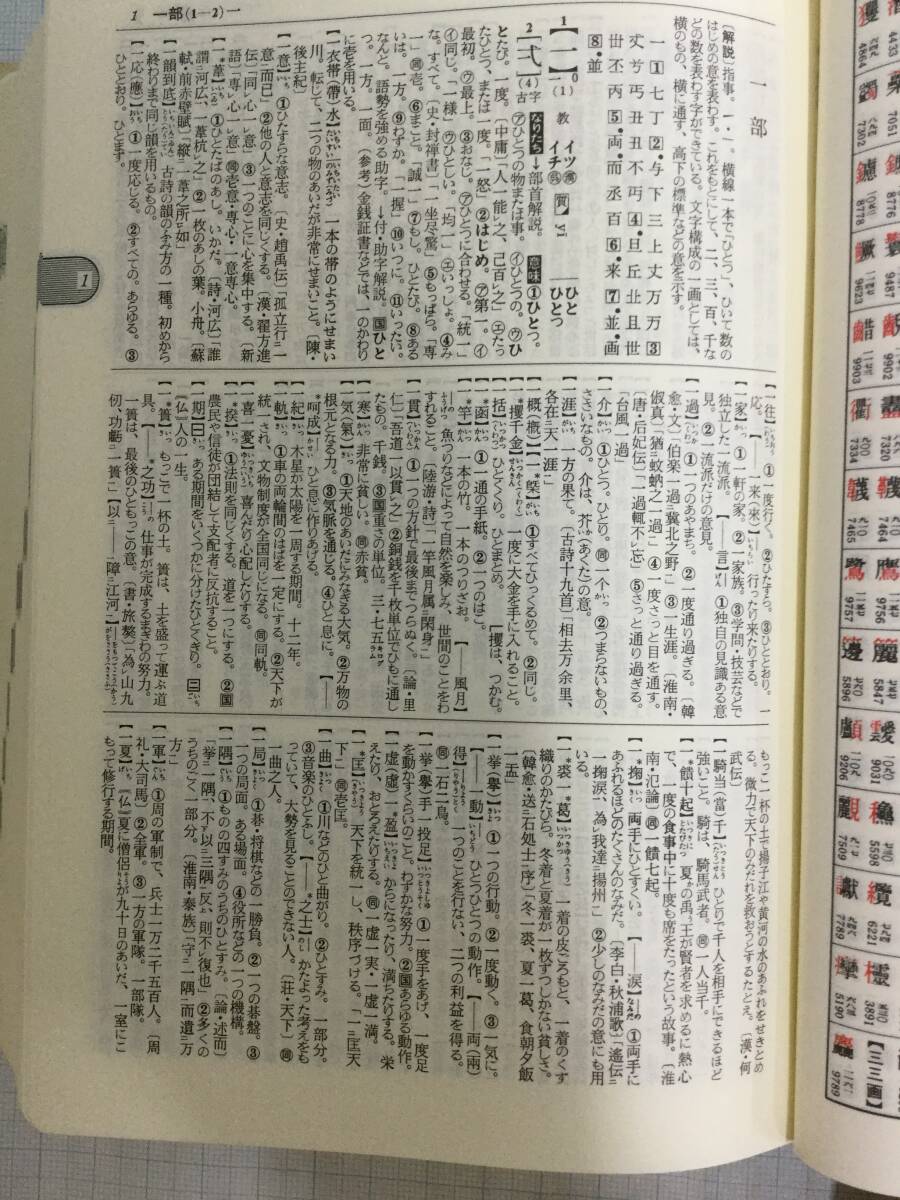 1 一部(1—2)一
一部
〔解説〕指事。一・一。横線一本で「ひとつ」、ひいて数の
はじめの意を表わす。これをもとにして、二、三、百、千な
どの数を表わす字ができている。文字構成の一画としては、
横のもの、横に通す、高下の標準などの意を示す。
一❶七丁❷与下三上丈万❸
丈丐丑不丏❹旦丘且世
丗丕丙❺両而丞❻来❼並・画
❽並
1
【一】
(1)
教
イツ
イチ
質
yī
ひと
ひとつ
2
【弌】
(4)
古字
なりたち→部首解説。
意味①ひとつ。
㋐ひとつの物または事。㋑ひとつの。㋒ひ
とたび。一度。〔中庸〕「人一能レ之、己百レ之」㋓たっ
たひとつ。または一度。「一怒」②はじめ。㋐第一。㋑
最初。㋒最上。③おなじ。㋐ひとつに合わせる。「統一」
㋑同じ。「一様」㋒ひとしい。「均一」㋓いっしょ。④み
な。すべて。〔史・封禅書〕「一坐尽驚」⑤もっぱら。「専
一」⑥まこと。「誠一」⑦もし。ひとたび。⑧ある
いは。一方。⑨わずか。「一握」⑩いつに。⑪いったい。
なんと。語勢を強める助字。→付・助字解説。国ひと
つ。一方。一面。〔参考〕金銭証書などでは、一のかわり
に壱を用いる。
【一衣帯(帶)水】一本の帯のようにせまい
川。転じて、二つの物のあいだが非常にせまいこと。〔陳・
後主紀〕
【一意】①ひたすらな意志。〔史・趙禹伝〕「孤立行二一
意一而已」②他の人と意志を同じくする。〔漢・翟方進
伝〕「同心一意」③一つのことに心を集中する。〔新
語〕「専レ心一意」同壱意・専心・一意専心。
【一葦】①ひとたばのあし。いかだ。〔詩・河広〕「誰
謂二河広一、一葦杭レ之」②一枚のあしの葉。小舟。〔蘇
軾・前赤壁賦〕「縦二一葦之所一レ如」
【一韻到底】古詩の韻のふみ方の一種。初めから
終わりまで同じ韻を用いるもの。
【一応(應)】①一度応じる。②すべての。あらゆる。③
ひととおり。ひとまず。
【一往】①一度行く。②ひたすら。③ひととおり。一
応。【——来(來)】行ったり来たりする。
【一家】①一軒の家。②一家族。③学問・技芸などで
独立した一流派。【——言】①独自の見識ある意
見。②一流派だけの意見。
【一過】①一つのあやまち。②一度通り過ぎる。〔韓
愈・文〕「伯楽一過二冀北之野一」③一生涯。〔淮南・
俶真〕「猶二蚊蚋之一過一」④一度さっと目を通す。
〔唐・后妃伝〕「一過輒不レ忘」⑤さっと通り過ぎる。
「台風一過」
【一介】①ひとつ。ひとり。同一个。②つまらないもの、
ささいなもの。介は、芥(あくた)の意。
【一涯】一方の果て。〔古詩十九首〕「相去万余里、
各在二天一涯一」
【一概(槪)】①すべてひっくるめて。②同じ。
【一攫千金】一度に大金を手に入れること。
【一括】ひとくくり。ひとまとめ。　〔攫は、つかむ。
【一函】①一通の手紙。②一つのはこ。
【一竿】一本の竹。一本のつりざお。【——風月】
——の　魚つりなどによって自然を楽しみ、世間のことをわ
すれること。〔陸游・詩〕「一竿風月属二閑身一」
【一貫】①一つの方針で最後までつらぬく。〔論・里
仁〕「吾道一以貫レ之」②銅銭を千枚単位でひもに通し
たもの。千銭。③国重さの単位。三・七五キログラム
【一寒】非常に貧しい。同赤貧。
【一気(氣)】①天地のあいだにみなぎる大気。②万物の
根元となる力。③気脈を通じる。④ひと息に。【——
呵成】ひと息に作りあげる。
【一紀】木星が太陽を一周する期間。十二年。
【一軌】①車の両輪間のはばを一定にする。②天下が
統一され、文物制度が全国同じになる。同同軌。
【一喜一憂】喜んだり心配したりする。
【一揆】①法則を同じくする。道を一つにする。②国
農民や信徒が団結して支配者に反抗すること。
【一期】㊀ある期間をいくつかに分けたひとくぎり。㊁
『仏』人の一生。
【一簣】もっこで一杯の土。簣は、土を盛って運ぶ道
具。【——之功】——の　仕事が完成するまぎわの努力。
一簣は、最後のひともっこの意。〔書・旅獒〕「為レ山九
仞、功虧二一簣一」【——障二江河一】
もっこ一杯の土で揚子江や黄河の水のあふれをせきとめ
る。微力で天下のみだれを救おうとするたとえ。〔漢・何
武伝〕
【一騎当(當)千】ひとりで千人を相手にできるほど
強いこと。騎は、騎馬武者。同一人当千。
【一饋十起】夏の禹王が賢者を求めるに熱心
で、一度の食事中に十度も席をたったという故事。〔淮
南・氾論〕同一饋七起。
【一掬】両手にひとすくい。【——涙】①両手に
あふれるほどのたくさんのなみだ。〔李白・秋浦歌〕「遥伝二
一掬涙一、為レ我達二揚州一」②少しのなみだの意にも用
いる。
【一裘一葛】一着の皮ごろもと、一着のくず
織りのかたびら。冬着と夏着が一枚ずつしかない貧しさ。
〔韓愈・送二石処士一序〕「冬一裘、夏一葛、食朝夕飯
一盂」
【一挙(擧)】①一つの行動。②一度動く。③一気に。
【——一動】ひとつひとつの動作。【——両(兩)
得】一つのことを行ない、二つの利益を得る。
同一石二鳥。
【一挙(擧)手一投足】①一度手をあげ、一度足
を動かすぐらいのこと。わずかな努力。②国あらゆる動作。
【一虚(虛)一盈】からになったり、満ちたりする。栄
えたり、おとろえたりする。同一虚一実・一虚一満。
【一匡】天下を統一し、秩序づける。「一匡天
下一」同壱匡。
【一曲】①川などのひと曲がり。②ひとすみ。一部分。
③音楽のひとふし。【——之士】かたよった考えをも
っていて、大勢を見ることのできない人。〔荘・天下〕同
一曲之人。
【一局】①碁・将棋などの一勝負。②一つの碁盤。③
一つの局面。ある場面。④役所などの一つの機構。
【一隅】①もの四すみのうちのひとすみ。〔論・述而〕
「挙二一隅一、不下以二三隅一反上則不レ復也」②多くの
うちのごく一部分。〔淮南・泰族〕「守二一隅一而遺二万
方一」
【一軍】①周の軍制で、兵士一万二千五百人。〔周
礼・大司馬〕②全軍。③一方の軍隊。一部隊。
【一夏】『仏』夏に僧侶が九十日のあいだ、一室にこ
もって修行する期間。
1
4433
4864
7302
8778
8776
9487
9623
9902
9903
7334
7320
7465
7464
9757
9756
5896
5847
9206
9031
7509
5598
7789
6221
5190
3891
9789
【三三画】